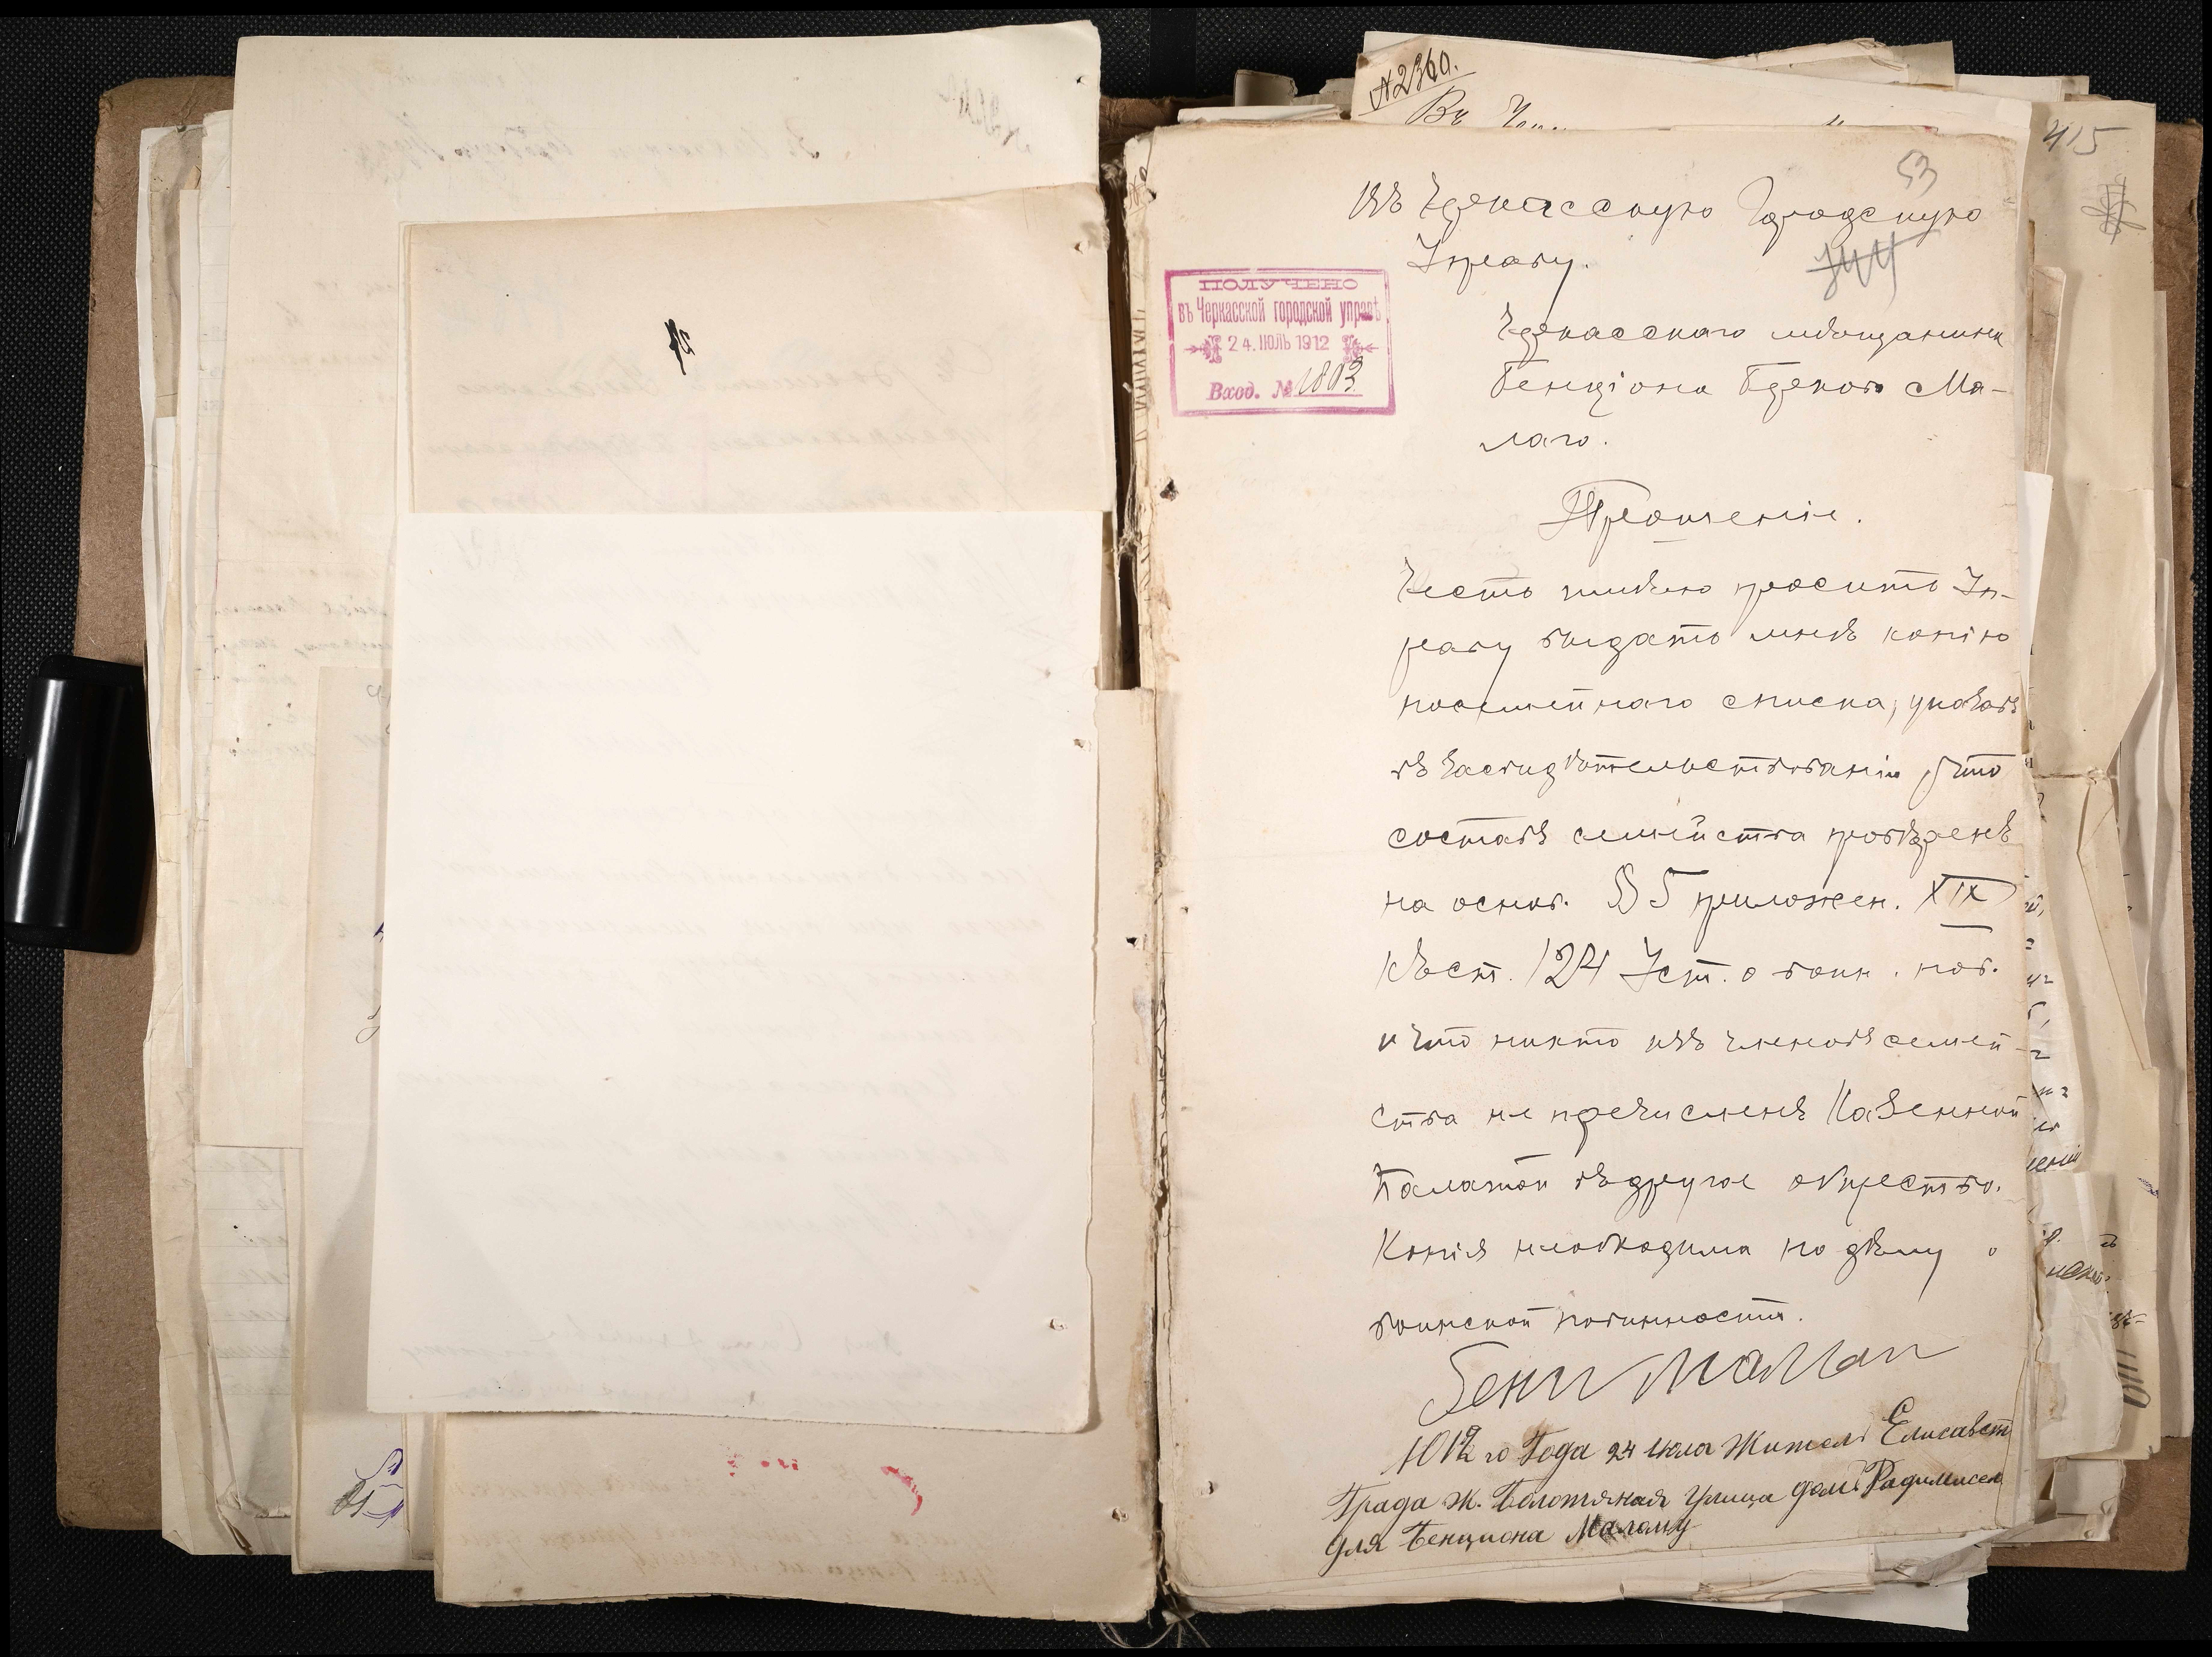 №2360.
Въ
415
53
344
Въ Черкасскую Городскую
Управу.
ПОЛУЧЕНО
въ Черкасской городской управѣ
24. ІЮЛЬ 1912
Вход. № 1803
Черкасскаго мѣщанина
Бенціона Беркова Ма-
лаго.
Прошеніе.
Честь имѣю просить Уп-
раву выдать мнѣ копію
посемейнаго списка, указавъ
въ засвидѣтельствованіи, что
составъ семейства провѣренъ
на основ. § 5 приложен. XIX
къ ст. 124 Уст. о воин. пов.
и что никто изъ членовъ семей-
ства не перечисленъ Казенной
Палатой въ другое общество.
Копія необходима по дѣлу о
воинской повинности.
Бенц Малай
1912 го Года 24 Июла Житель Елисавет
Града Ж. Болотяная Улица домъ
для Бенциона Малому